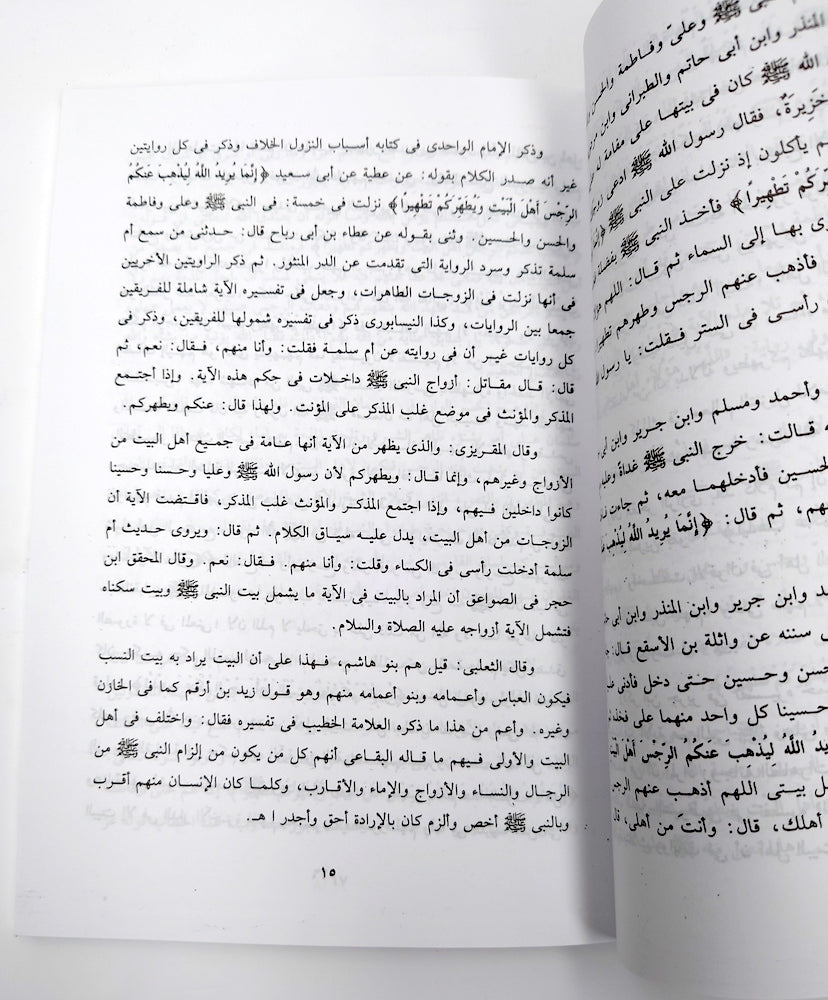 وذكر الإمام الواحدى فى كتابه أسباب النزول الخلاف وذكر فى كل روايتين
غير أنه صدر الكلام بقوله: عن عطية عن أبى سعيد ﴿إِنَّمَا يُرِيدُ اللَّهُ لِيُذْهِبَ عَنكُمُ
الرِّجْسَ أَهْلَ الْبَيْتِ وَيُطَهِّرَكُمْ تَطْهِيرًا﴾ نزلت فى خمسة: فى النبى ﷺ وعلى وفاطمة
والحسن والحسين. وثنى بقوله عن عطاء بن أبى رباح قال: حدثنى من سمع أم
سلمة تذكر وسرد الرواية التى تقدمت عن الدر المنثور. ثم ذكر الراويتين الأخريين
فى أنها نزلت فى الزوجات الطاهرات، وجعل فى تفسيره الآية شاملة للفريقين
جمعا بين الروايات، وكذا النيسابورى ذكر فى تفسيره شمولها للفريقين، وذكر فى
كل روايات غير أن فى روايته عن أم سلمة فقلت: وأنا منهم، فقال: نعم، ثم
قال: قال مقاتل: أزواج النبى ﷺ داخلات فى حكم هذه الآية. وإذا أجتمع
المذكر والمؤنث فى موضع غلب المذكر على المؤنث. ولهذا قال: عنكم ويطهركم.
وقال المقريزى: والذى يظهر من الآية أنها عامة فى جميع أهل البيت من
الأزواج وغيرهم، وإنما قال: ويطهركم لأن رسول الله ﷺ وعليا وحسنا وحسينا
كانوا داخلين فيهم، وإذا اجتمع المذكر والمؤنث غلب المذكر، فاقتضت الآية أن
الزوجات من أهل البيت، يدل عليه سياق الكلام. ثم قال: ويروى حديث أم
سلمة أدخلت رأسى فى الكساء وقلت: وأنا منهم. فقال: نعم. وقال المحقق ابن
حجر فى الصواعق أن المراد بالبيت فى الآية ما يشمل بيت النبى ﷺ وبيت سكناه
فتشمل الآية أزواجه عليه الصلاة والسلام.
وقال الثعلبى: قيل هم بنو هاشم، فهذا على أن البيت يراد به بيت النسب
فيكون العباس وأعمامه وبنو أعمامه منهم وهو قول زيد بن أرقم كما فى الخازن
وغيره. وأعم من هذا ما ذكره العلامة الخطيب فى تفسيره فقال: واختلف فى أهل
البيت والأولى فيهم ما قاله البقاعى أنهم كل من يكون من إلزام النبى ﷺ من
الرجال والنساء والأزواج والإماء والأقارب، وكلما كان الإنسان منهم أقرب
وبالنبى ﷺ أخص وألزم كان بالإرادة أحق وأجدر ا هـ.
١٥
ﷺ وعلىّ وفاطمة
المنذر وابن أبى حاتم والطبرانى وابن
الله ﷺ كان فى بيتها على
خَزِيرَةٌ، فقال رسول الله ﷺ ادعى
يأكلون إذ نزلت على النبى ﷺ
تَطْهِيرًا﴾ فأخذ النبى ﷺ
بها إلى السماء ثم قال: اللهم
فأذهب عنهم الرجس وطهرهم
رأسى فى الستر فقلت: يا رسول
وأحمد ومسلم وابن جرير وابن
قالت: خرج النبى ﷺ غداة
الحسين فأدخلهما معه، ثم جاءت
ثم قال: ﴿إِنَّمَا يُرِيدُ اللَّهُ لِيُذْهِبَ
وابن جرير وابن المنذر وابن أبى
سننه عن واثلة بن الأسقع قال:
وحسين حتى دخل فأدنى
حسينا كل واحد منهما على
اللَّهُ لِيُذْهِبَ عَنكُمُ الرِّجْسَ أَهْلَ
بيتى اللهم أذهب عنهم
أهلك، قال: وأنتَ من أهلى،